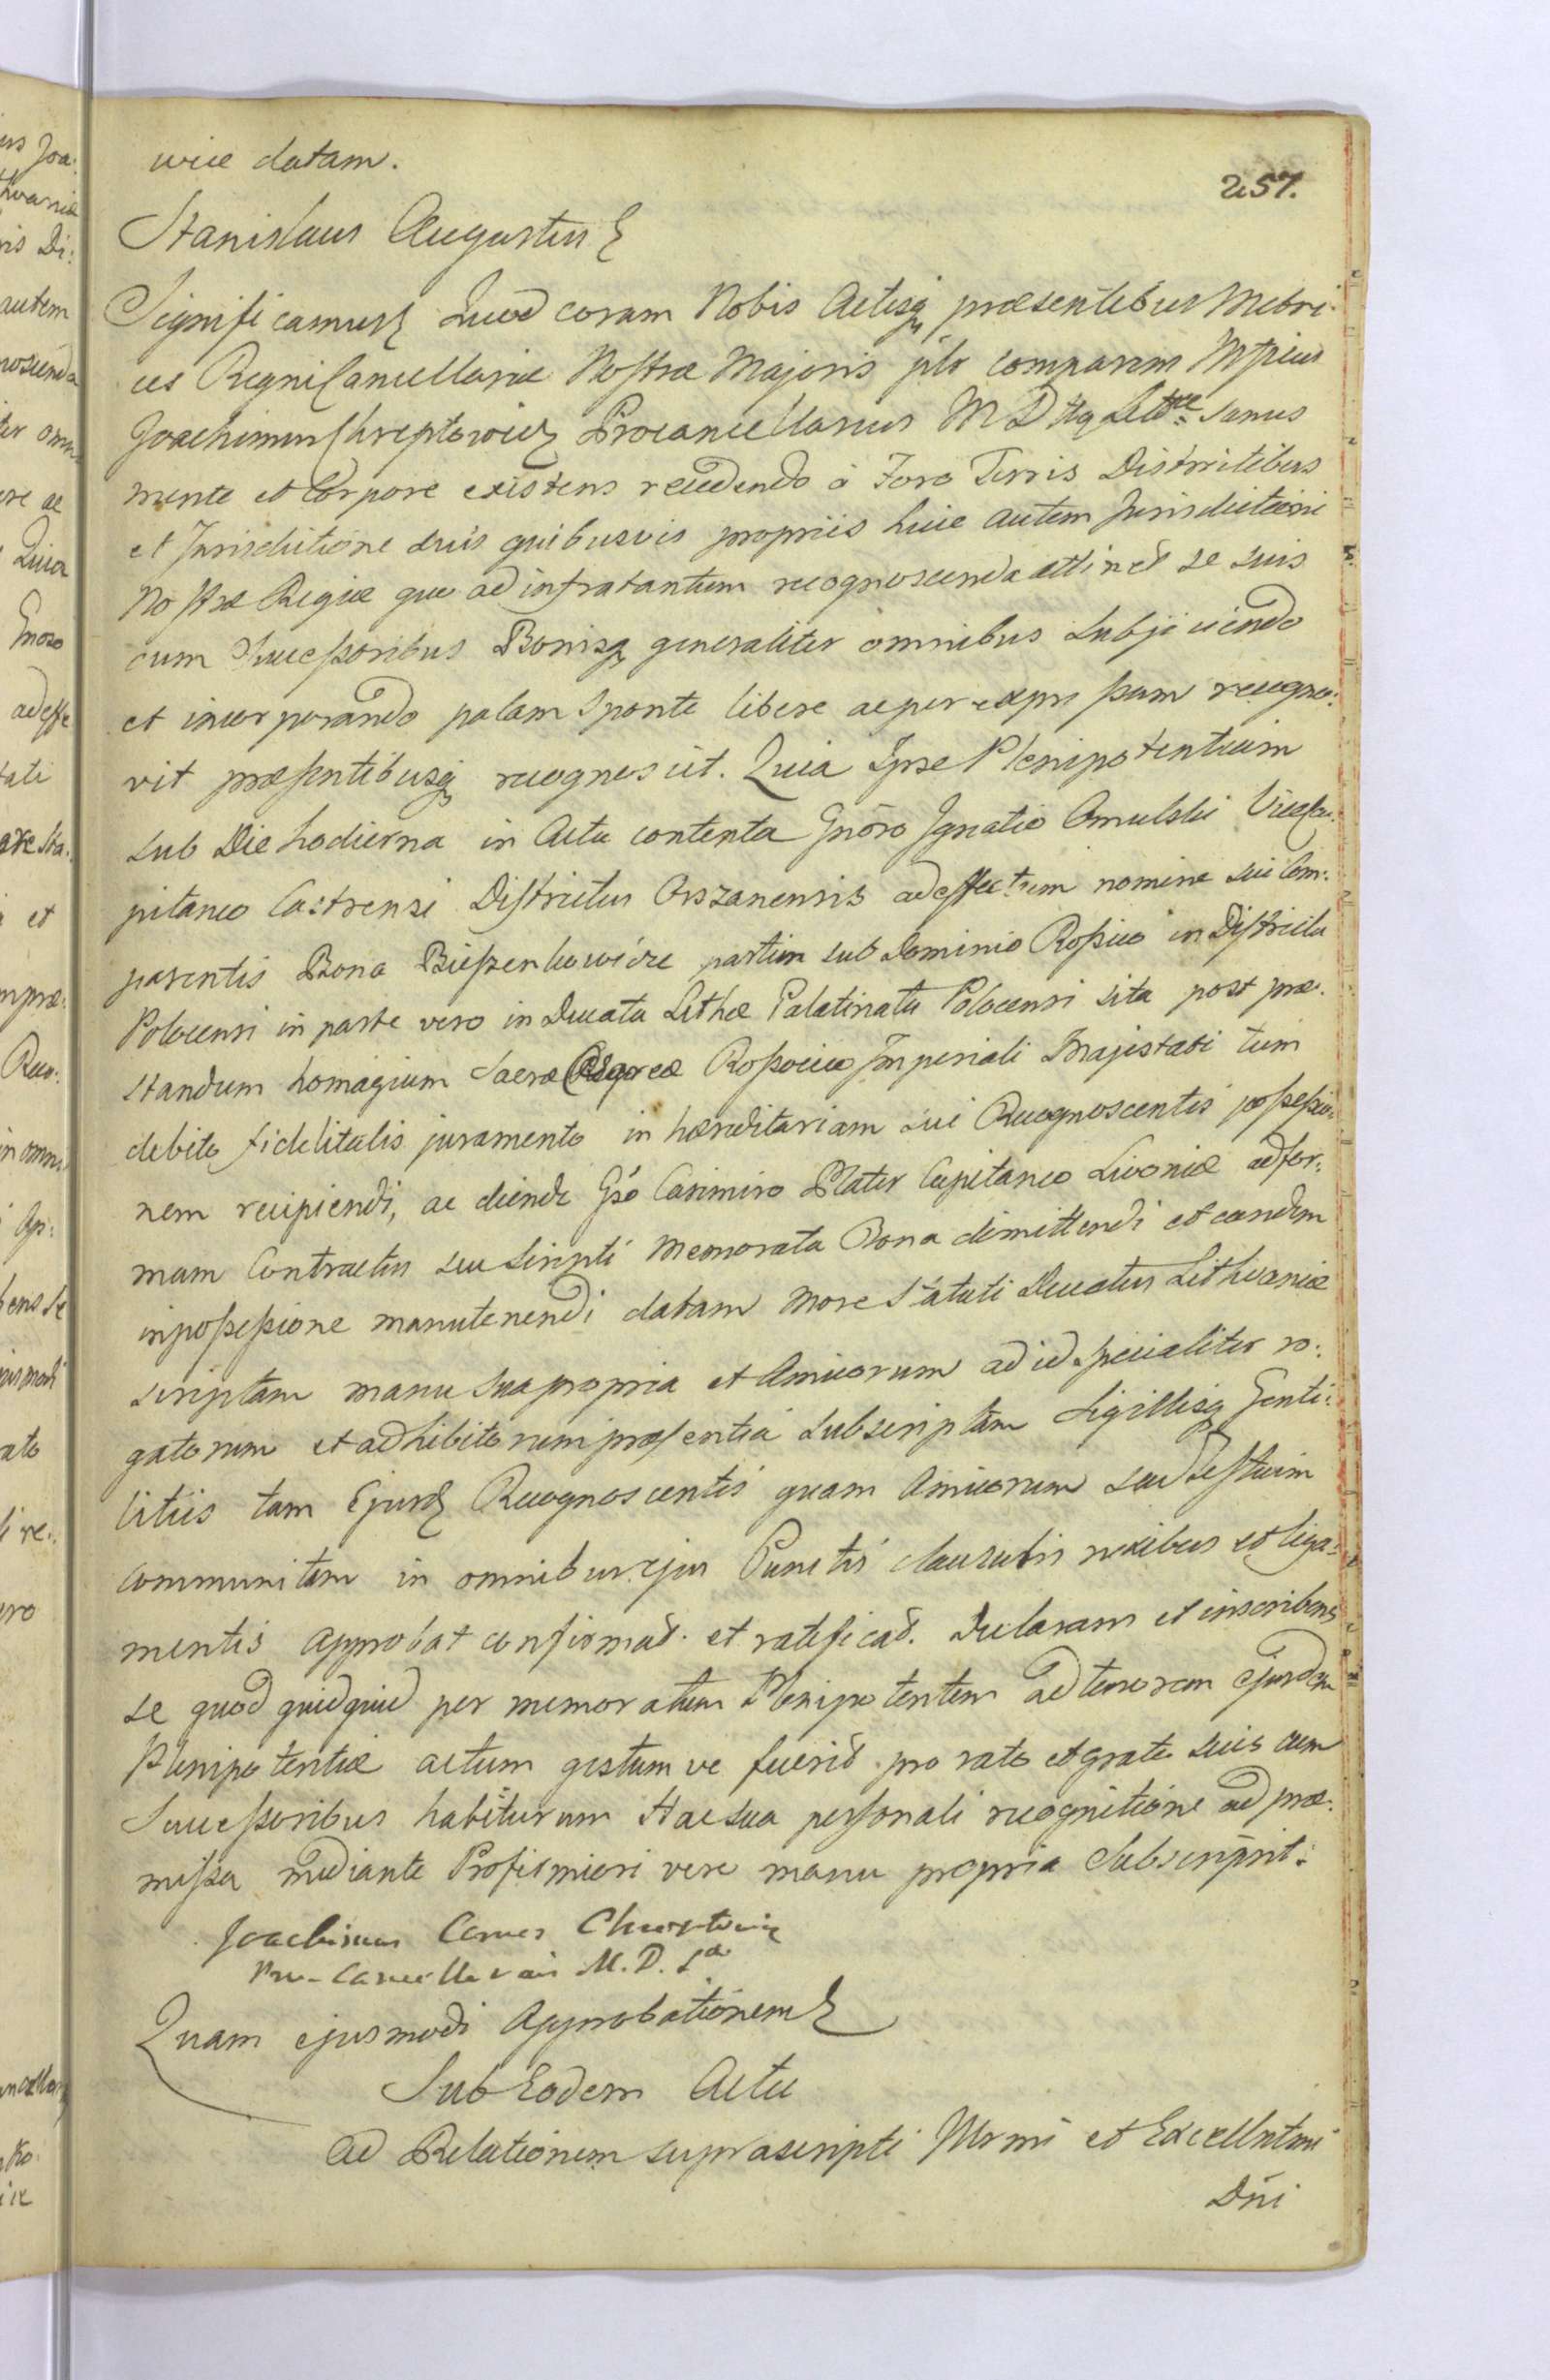 wice datam.
257.
Stanislaus Augustus
Significamus Quod coram Nobis Actisq præsentibus Metri:
ces Regni Cancellariæ Nostræ Majoris plr comparens Mfficus
Joachimus Chreptowicz Procancellarius M D Lttæ sanus
mente et Corpore existens recedendo à Foro Terris Districtibus
et Jurisdictione suis quibusvis propriis huic autem Jurisdictioni
Nostræ Regiæ quo ad infratantum recognoscenda attinet se suis
cum Successoribus Bonisq generaliter omnibus Subjiciendo
et incorporando palam Sponte libere ac per expressum recogno:
vit præsentibusq recognoscit. Quia Ipse Plenipotentiam
sub Die hodierna in Actu contenta Gnoro Ignatio Omulski Viceca:
pitaneo Castrensi Districtus Orszanensis ad effectum nomine sui Com:
parentis Bona Bieszenkowicze partim sub Dominio Rossico in Districtu
Polocensi in parte vero in Ducatu Lithæ Palatinatu Polocensi sita post præ:
standum homagium Sacræ Rossocicæ Imperiali Majestati tum
debito fidelitatis juramento in hæreditariam sui Recognoscentis possessio:
nem recipiendi, ac deinde Gso Casimiro Plater Capitaneo Livoniæ ad for:
mam Contractus seu scripti memorata Bona dimittendi et eundem
in possessione manutenendi datam more Statuti Ducatus Lithvaniæ
scriptam manu sua propria et Amicorum ad id specialiter ro:
gatorum et adhibitorum præsentia subscriptam Sigillisq Genti:
litiis tam Ejusd Recognoscentis quam Amicorum seu Testium
communitam in omnibus ejus Punctis clausulis nexibus et liga:
mentis approbat confirmat et ratificat. Declarans et inscribens
se quod quidquid per memoratum Plenipotentem ad tenorem ejusdem
Plenipotentiæ actum gestum ve fuerit pro rato et grato suis cum
Successoribus habiturum Hac sua personali recognitione ad præ:
missa mediante Profitmieri vere manu propria Subscripsit:
Joachimus Comes Chreptowicz
Pro-Cancellarius M. D. L
Quam ejusmodi Approbationem
Sub Eodem Actu
Ad Relationem suprascripti Illrmi et Excellntmi
Dni